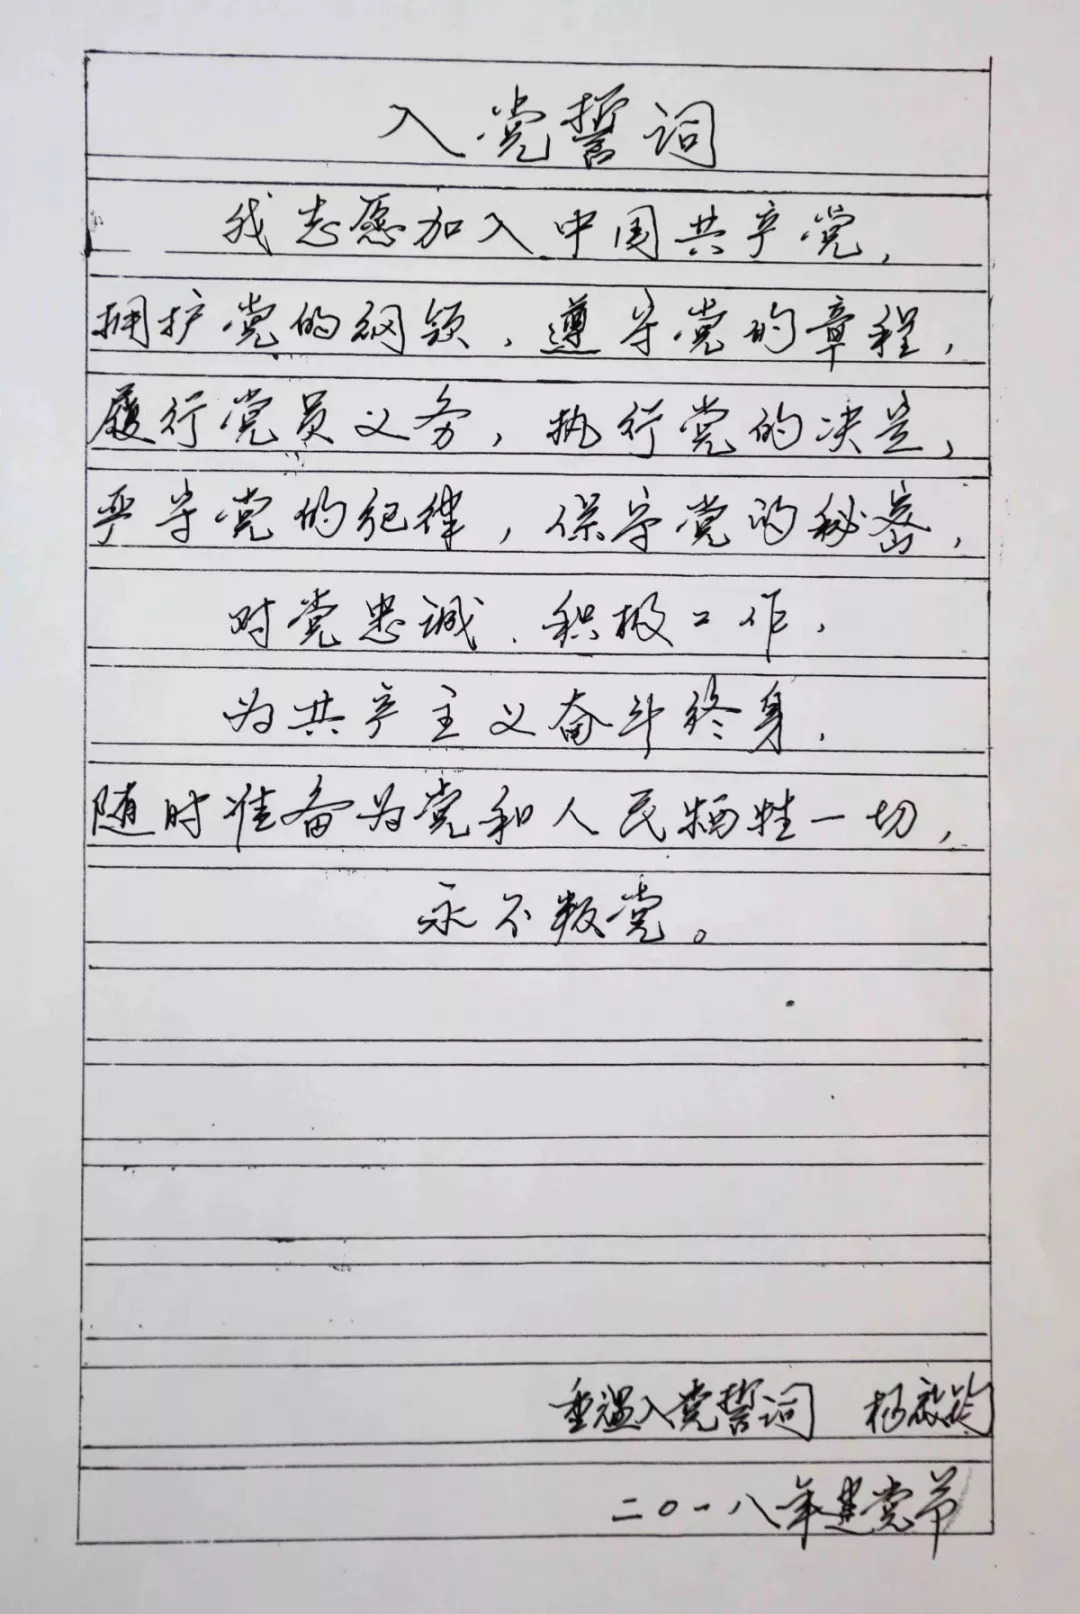 入党誓词
我志愿加入中国共产党，
拥护党的纲领，遵守党的章程，
履行党员义务，执行党的决定，
严守党的纪律，保守党的秘密，
对党忠诚，积极工作，
为共产主义奋斗终身，
随时准备为党和人民牺牲一切，
永不叛党。
重温入党誓词 杨
二〇一八年建党节